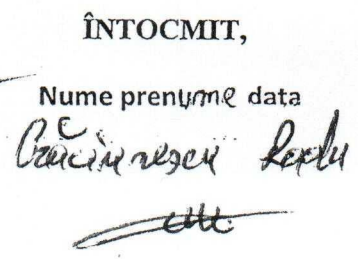 ÎNTOCMIT,
Nume prenume data
Crăciunescu Radu